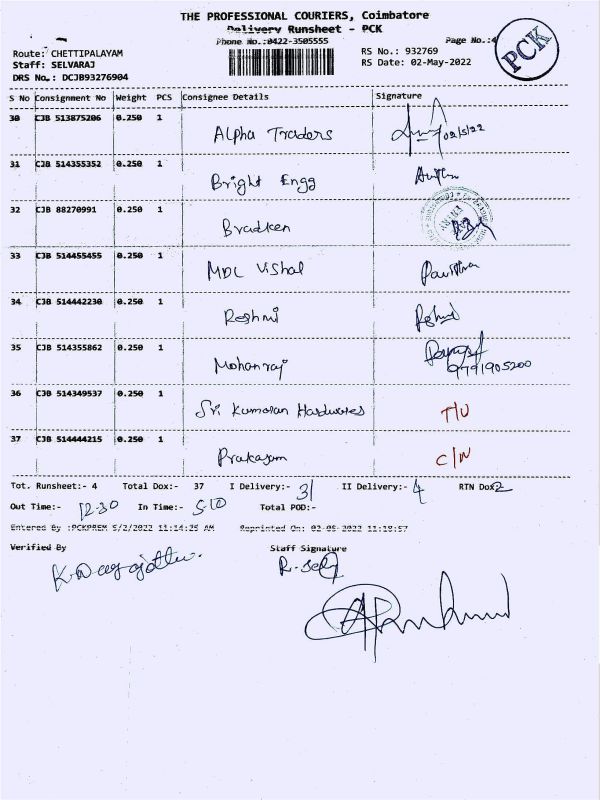 THE PROFESSIONAL COURIERS, Coimbatore
Delivery Runsheet - PCK
Phone No.:0422-3505555
Page No.:4
PCK
Route: CHETTIPALAYAM
RS No.: 932769
Staff: SELVARAJ
RS Date: 02-May-2022
DRS No.: DCJB93276904
S No Consignment No Weight PCS Consignee Details Signature
30 CJB 513875206 0.250 1 Alpha Traders 02/5/22
31 CJB 514355352 0.250 1 Bright Engg
32 CJB 88270991 0.250 1 Bradken
33 CJB 514455455 0.250 1 MDL Vishal
34 CJB 514442230 0.250 1 Reshmi
35 CJB 514355862 0.250 1 Mohanraj 9791905200
36 CJB 514349537 0.250 1 Sri Kumaran Hardwares T/U
37 CJB 514444215 0.250 1 Prakasam C/N
Tot. Runsheet:- 4 Total Dox:- 37 I Delivery:- 31 II Delivery:- 4 RTN Dox 2
Out Time:- 12-30 In Time:- 5-10 Total POD:-
Entered By :PCKPREM 5/2/2022 11:14:25 AM Reprinted On: 02-05-2022 11:18:57
Verified By Staff Signature